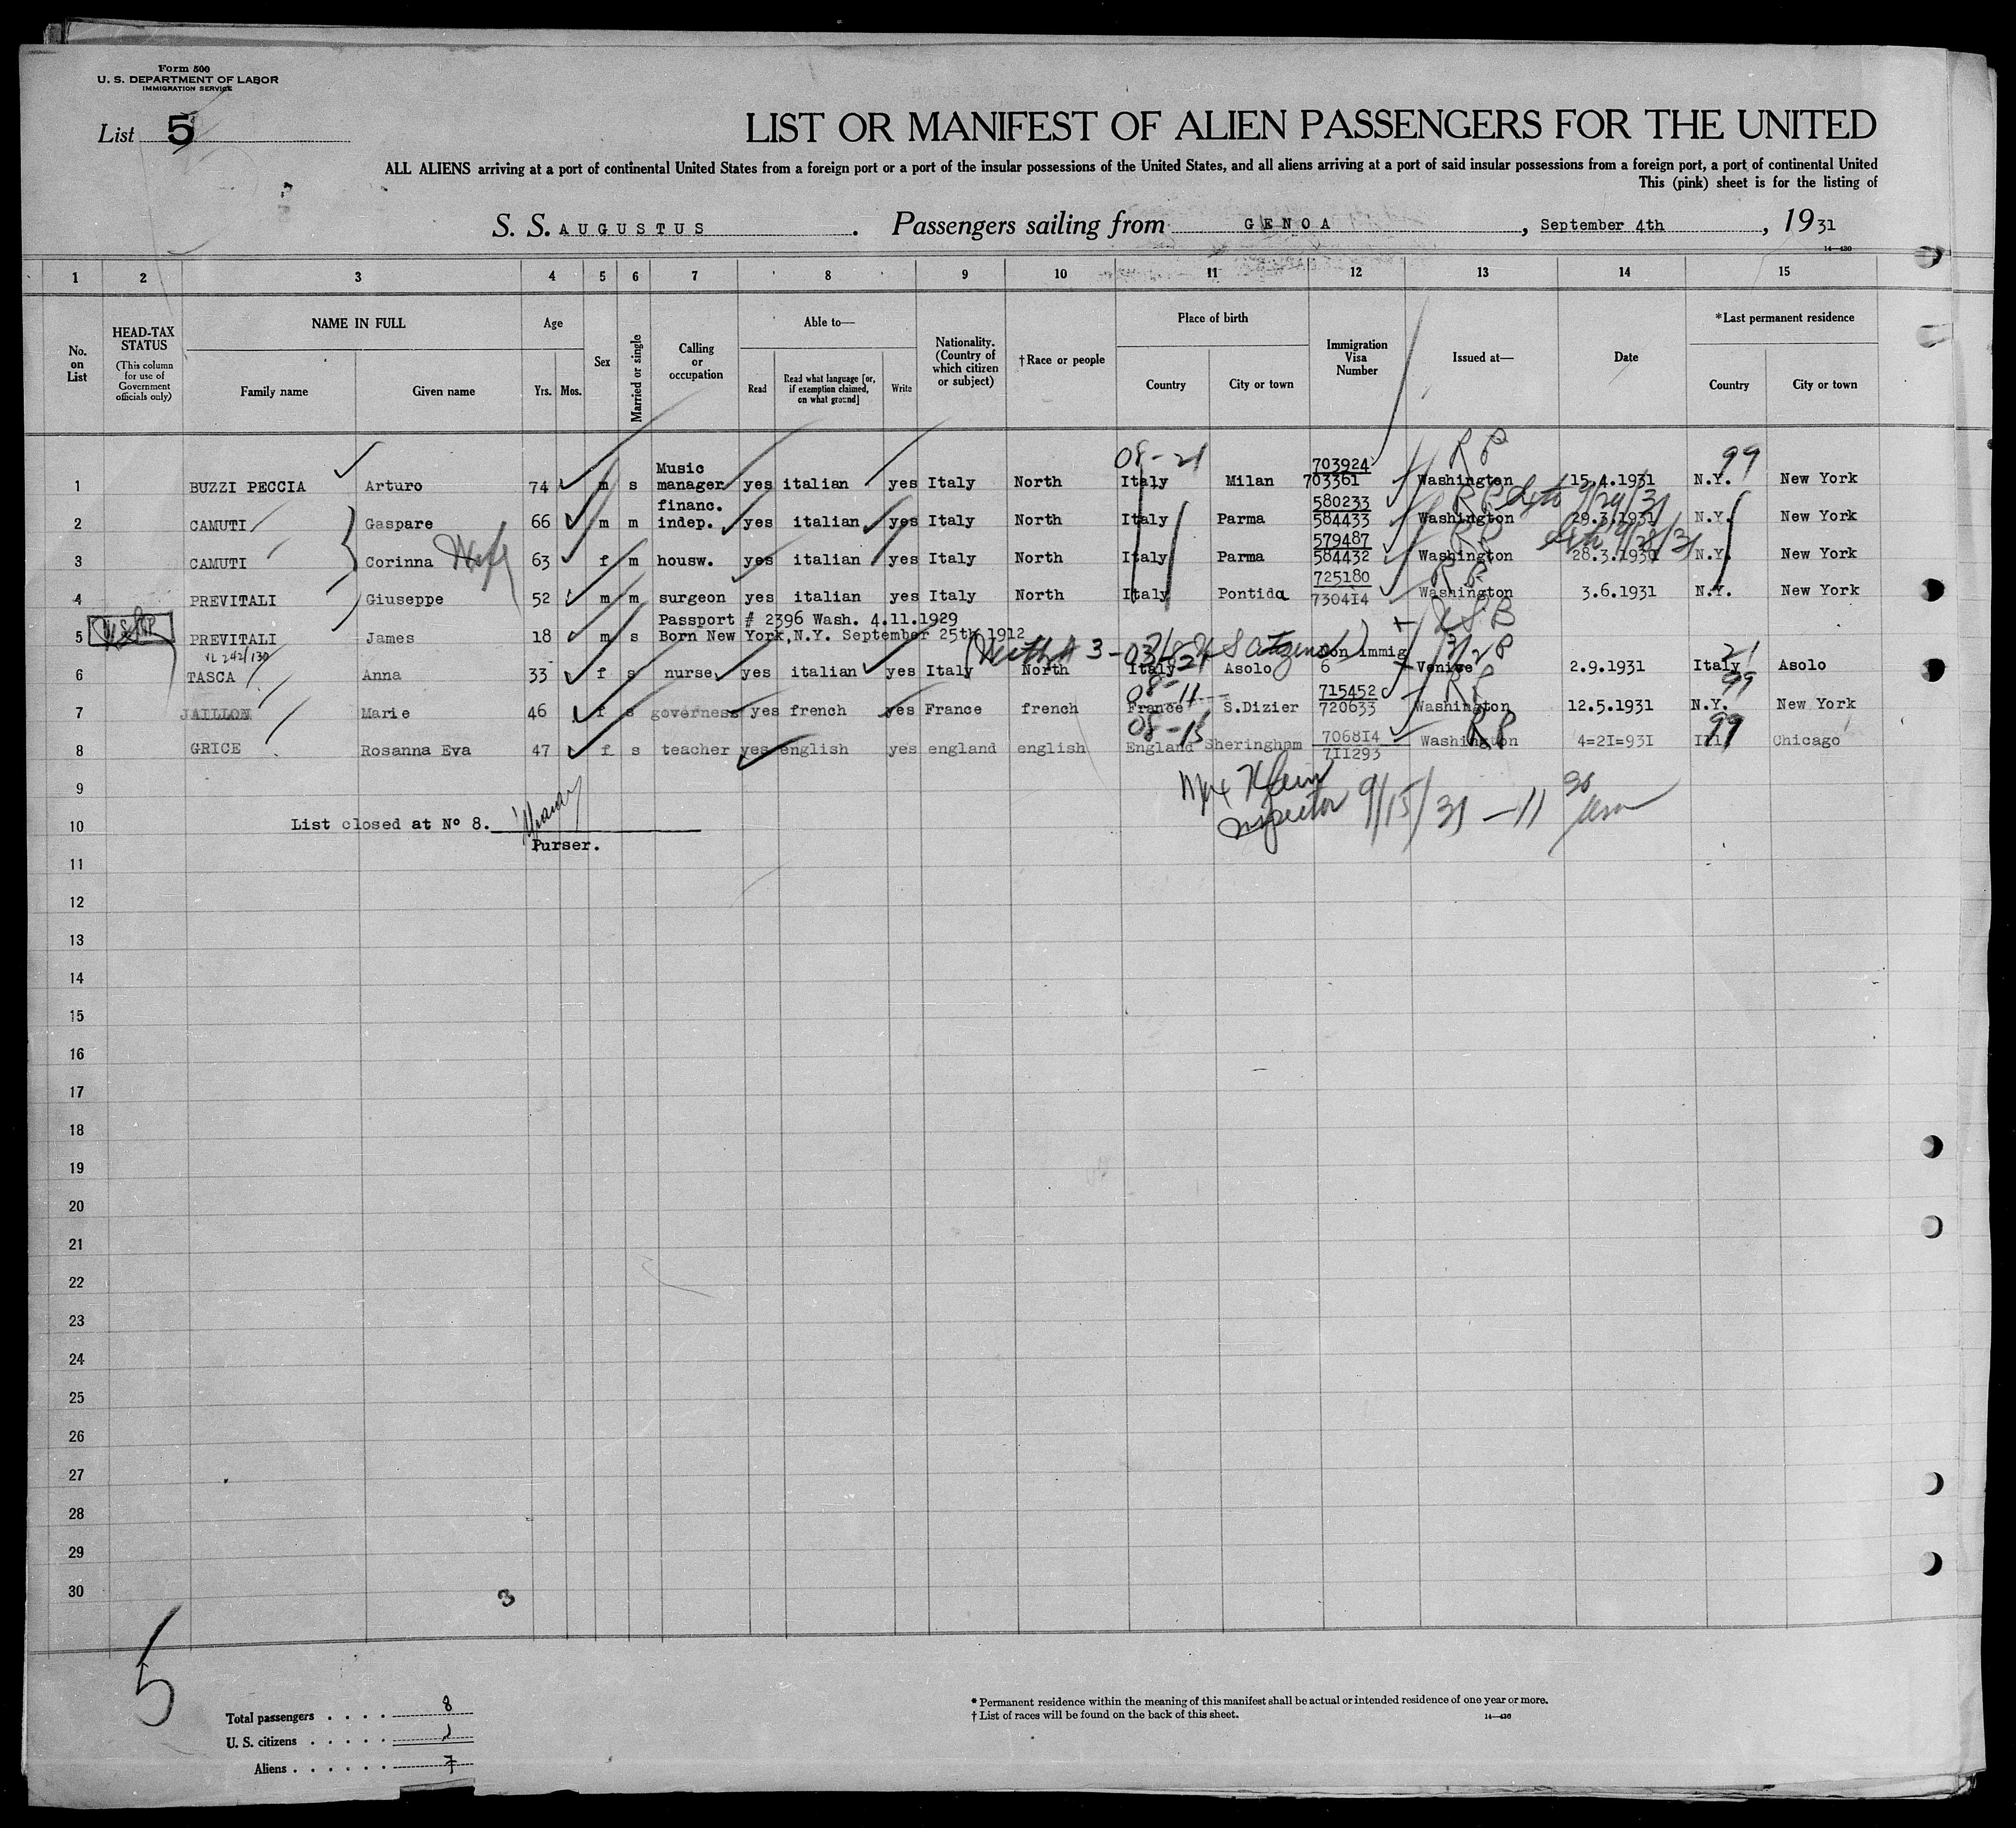 Form 500
U. S. DEPARTMENT OF LABOR
IMMIGRATION SERVICE
List 5
LIST OR MANIFEST OF ALIEN PASSENGERS FOR THE UNITED
ALL ALIENS arriving at a port of continental United States from a foreign port or a port of the insular possessions of the United States, and all aliens arriving at a port of said insular possessions from a foreign port, a port of continental United
This (pink) sheet is for the listing of
S. S. AUGUSTUS. Passengers sailing from GENOA, September 4th, 1931
14—430
1 2 3 4 5 6 7 8 9 10 11 12 13 14 15
No. on List
HEAD-TAX STATUS (This column for use of Government officials only)
NAME IN FULL
Family name Given name
Age
Yrs. Mos.
Sex
Married or single
Calling or occupation
Able to—
Read Read what language [or, if exemption claimed, on what ground] Write
Nationality. (Country of which citizen or subject)
†Race or people
Place of birth
Country City or town
Immigration Visa Number
Issued at—
Date
*Last permanent residence
Country City or town
08-21 703924 RP 99
1 BUZZI PECCIA Arturo 74 m s Music manager yes italian yes Italy North Italy Milan 703361 Washington 15.4.1931 N.Y. New York
580233 RP 9/29/31
2 CAMUTI Gaspare 66 m m financ. indep. yes italian yes Italy North Italy Parma 584433 Washington 29.3.1931 N.Y. New York
579487 RP
3 CAMUTI Corinna Wife 63 f m housw. yes italian yes Italy North Italy Parma 584432 Washington 28.3.1930 N.Y. New York
725180 RP
4 PREVITALI Giuseppe 52 m m surgeon yes italian yes Italy North Italy Pontida 730414 Washington 3.6.1931 N.Y. New York
Passport # 2396 Wash. 4.11.1929 USB
5 PREVITALI James 18 m s Born New York,N.Y. September 25th 1912
non immig 21
6 TASCA Anna 33 f s nurse yes italian yes Italy North Italy Asolo 6 Venice 2.9.1931 Italy Asolo
08-11 715452 RP 99
7 JAILLON Marie 46 f s governess yes french yes France french France S.Dizier 720633 Washington 12.5.1931 N.Y. New York
08-15 706814 RP 99
8 GRICE Rosanna Eva 47 f s teacher yes english yes england english England Sheringham 711293 Washington 4=21=931 Ill. Chicago
9
Inspector 9/15/31 - 11 30
10 List closed at No 8.
Purser.
11
12
13
14
15
16
17
18
19
20
21
22
23
24
25
26
27
28
29
30
3
5
Total passengers 8
U. S. citizens 1
Aliens 7
* Permanent residence within the meaning of this manifest shall be actual or intended residence of one year or more.
† List of races will be found on the back of this sheet.
14—430